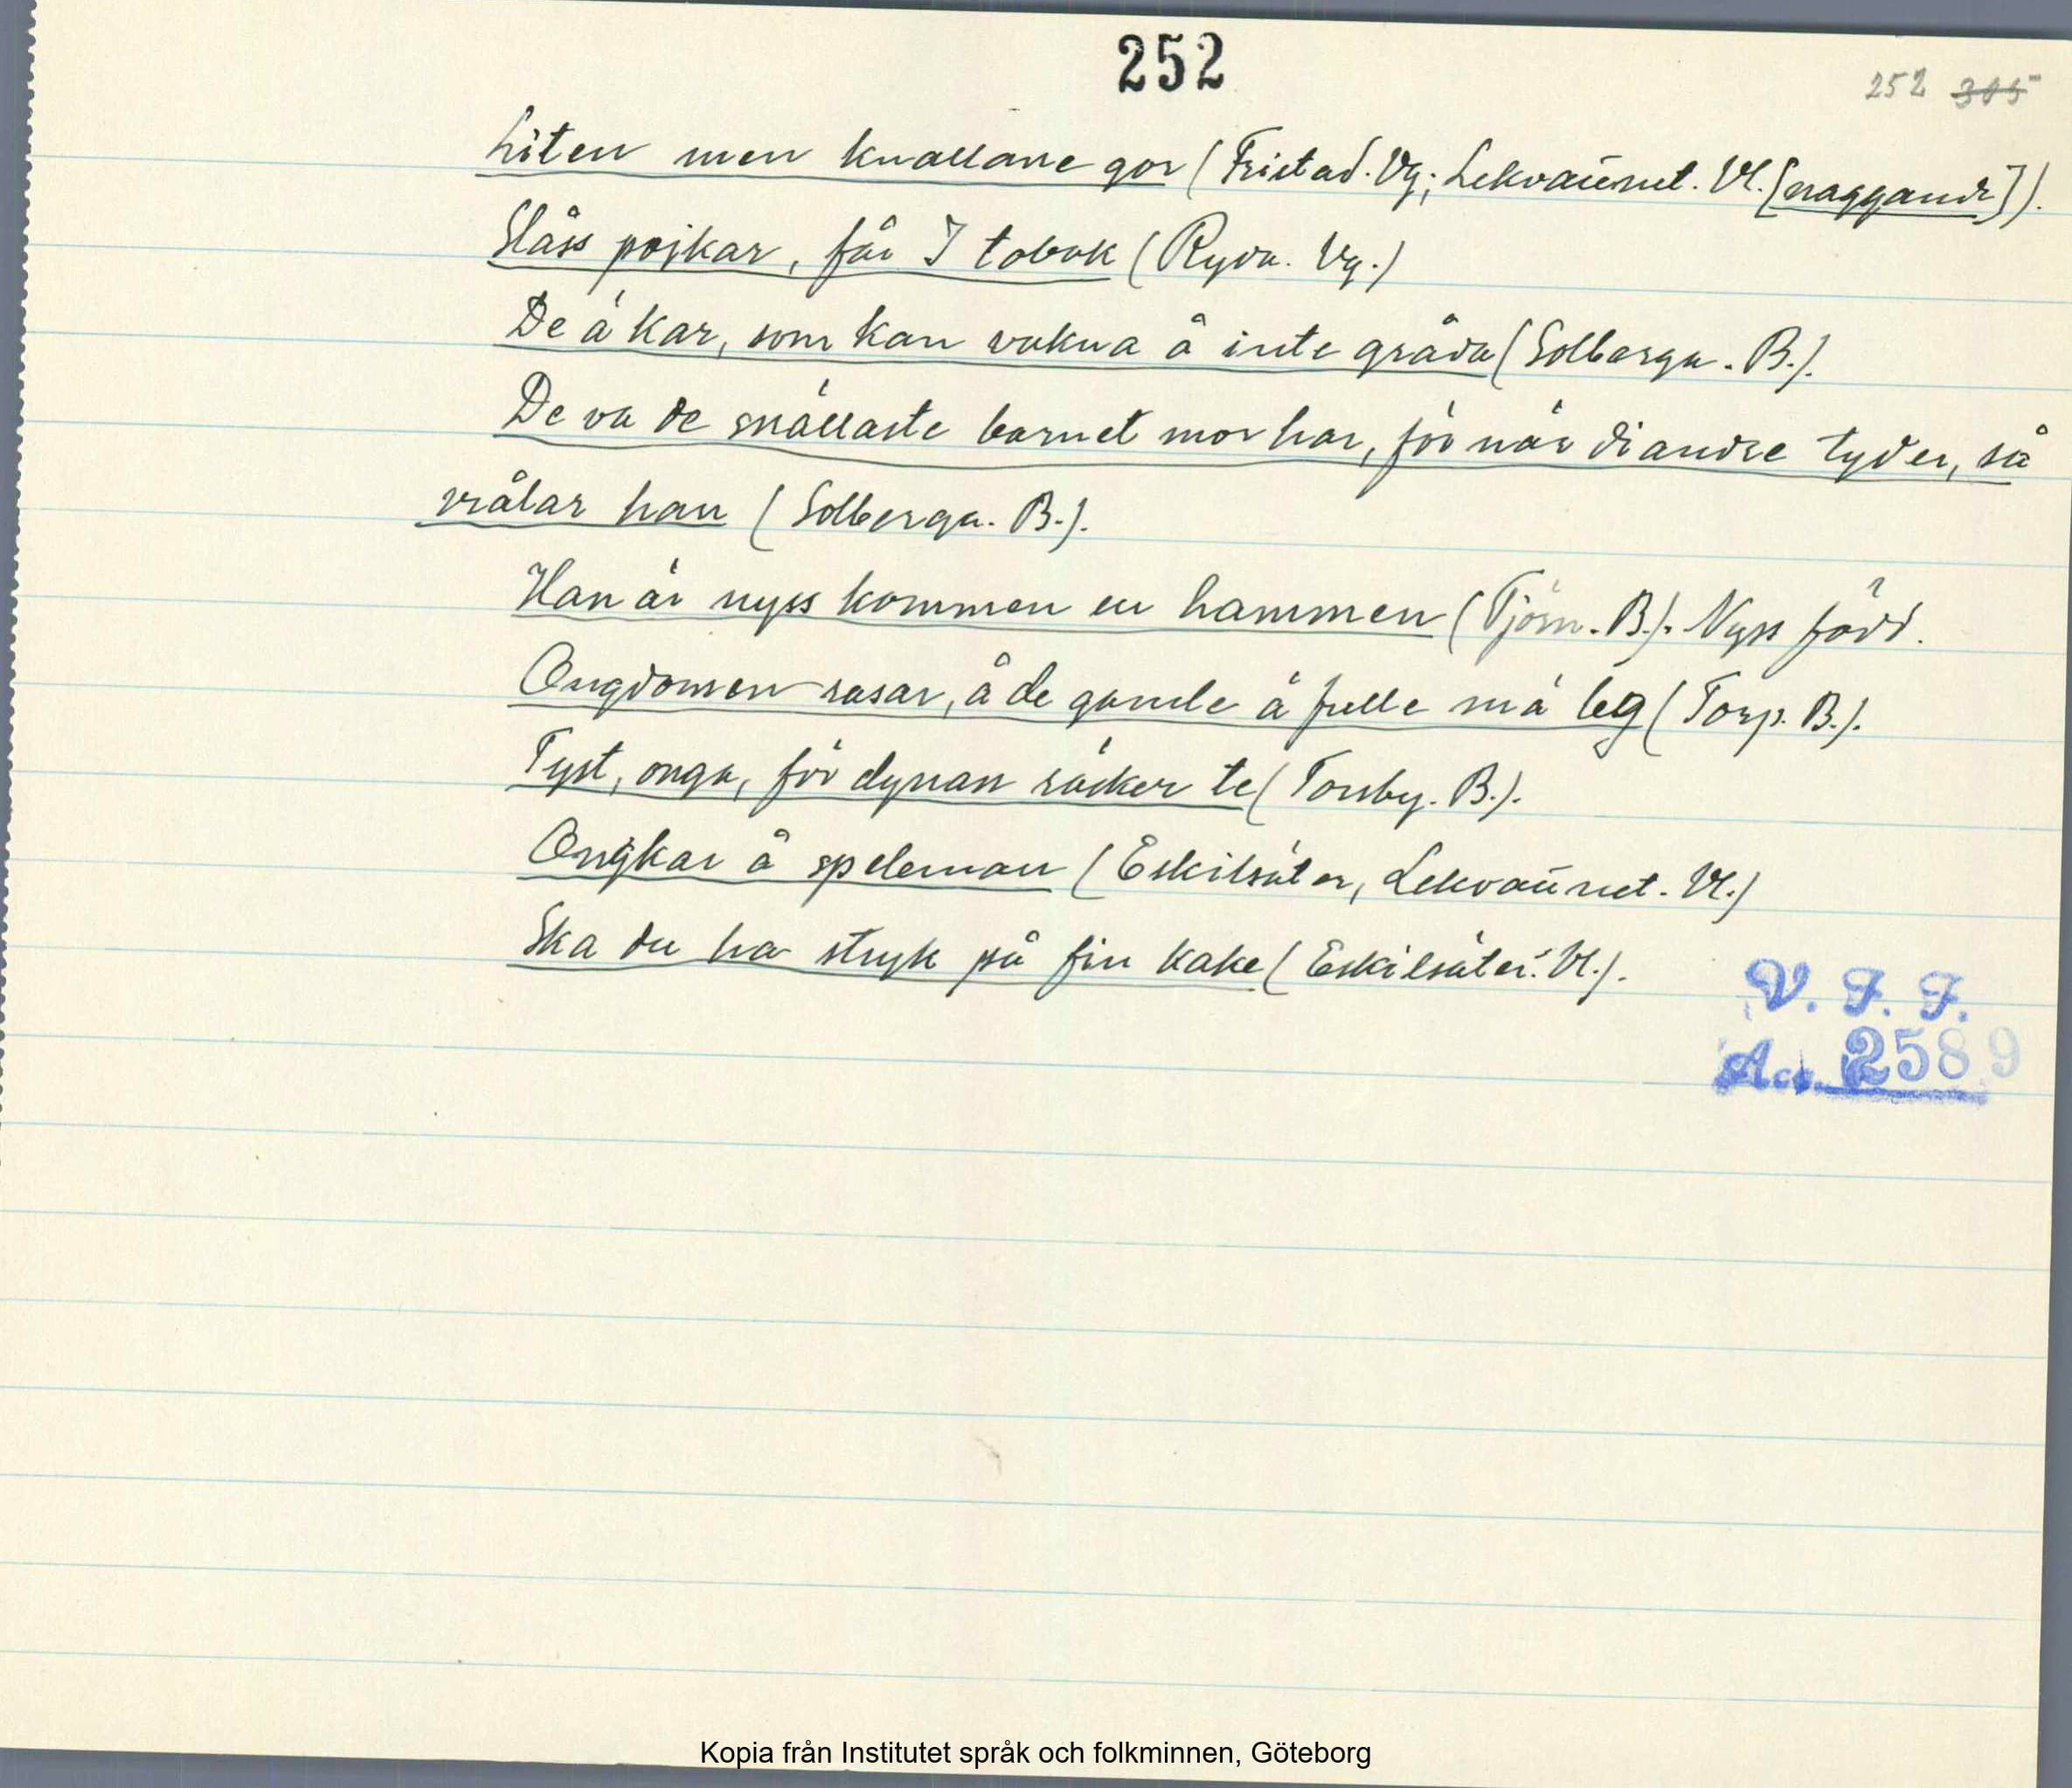 252
252 305
Liten men knallane gor (Fristad. Vg; Lekvattnet. Vl. [naggande]).
Slåss pojkar, får I tobak (Ryda. Vg.)
De ä kar, som kan vakna å inte gråda (Solberga. B.).
De va de snällaste barnet mor har, för när di andre tyder, så
vrålar han (Solberga. B.).
Han är nyss kommen ur hammen (Tjörn. B.). Nyss född.
Ongdomen rasar, å de gamle ä fulle må leg (Torp. B.).
Tyst, onga, för dynan räcker te (Torsby. B.).
Ongkar å speleman (Eskilsäter, Lekvattnet. Vl.)
Ska du ha stryk på fin kake (Eskilsäter. Vl.).
V. F. F.
Acc. 2589
Kopia från Institutet språk och folkminnen, Göteborg